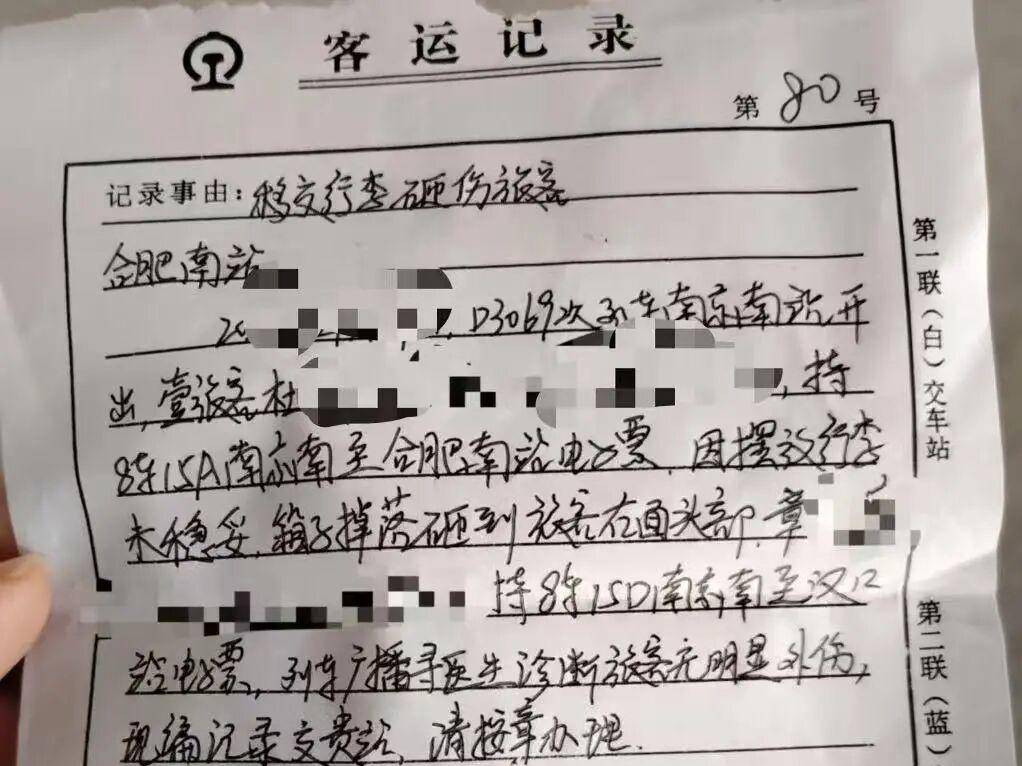 客运记录
第80号
记录事由:移交行李砸伤旅客
合肥南站
20 , D3069次列车南京南站开
出,壹旅客杜 ,持
8车15A南京南至合肥南站电子票,因摆放行李
未稳妥,箱子掉落砸到旅客右面头部,章
持8车15D南京南至汉口
站电子票,列车广播寻医生诊断旅客无明显外伤,
现编记录交贵站,请按章办理.
第一联(白)交车站
第二联(蓝)